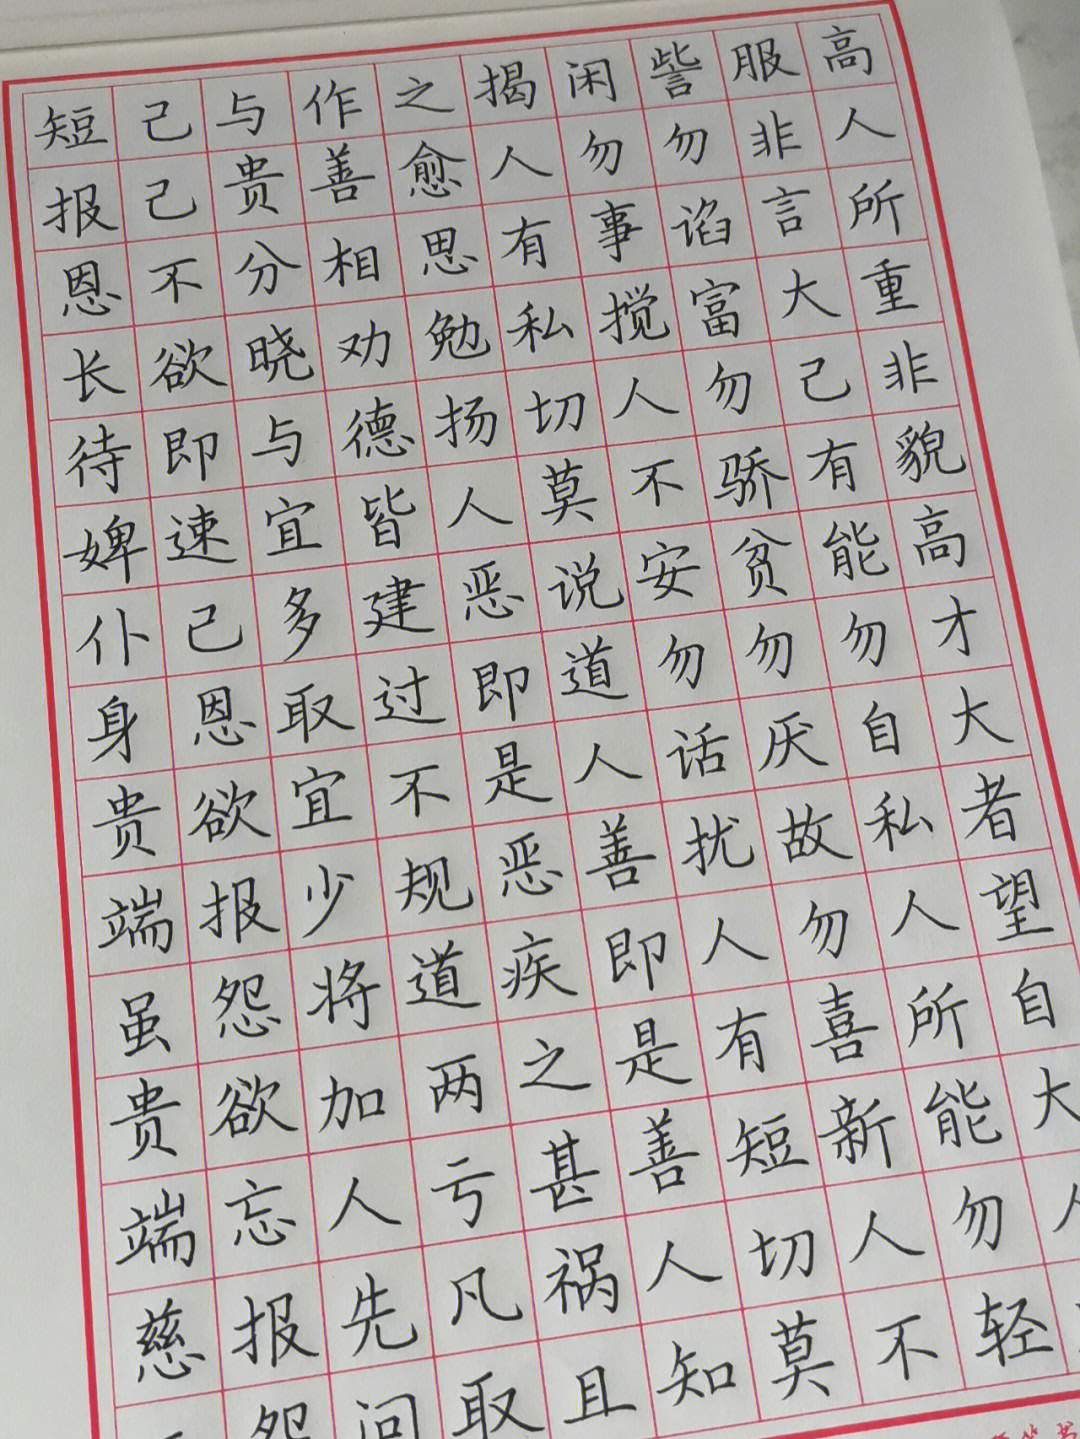 高人所重非貌高才大者望自大
服非言大己有能勿自私人所能勿轻
訾勿谄富勿骄贫勿厌故勿喜新人不
闲勿事搅人不安勿话扰人有短切莫
揭人有私切莫说道人善即是善人知
之愈思勉扬人恶即是恶疾之甚祸且
作善相劝德皆建过不规道两亏凡取
与贵分晓与宜多取宜少将加人先问
己己不欲即速己恩欲报怨欲忘报怨
短报恩长待婢仆身贵端虽贵端慈